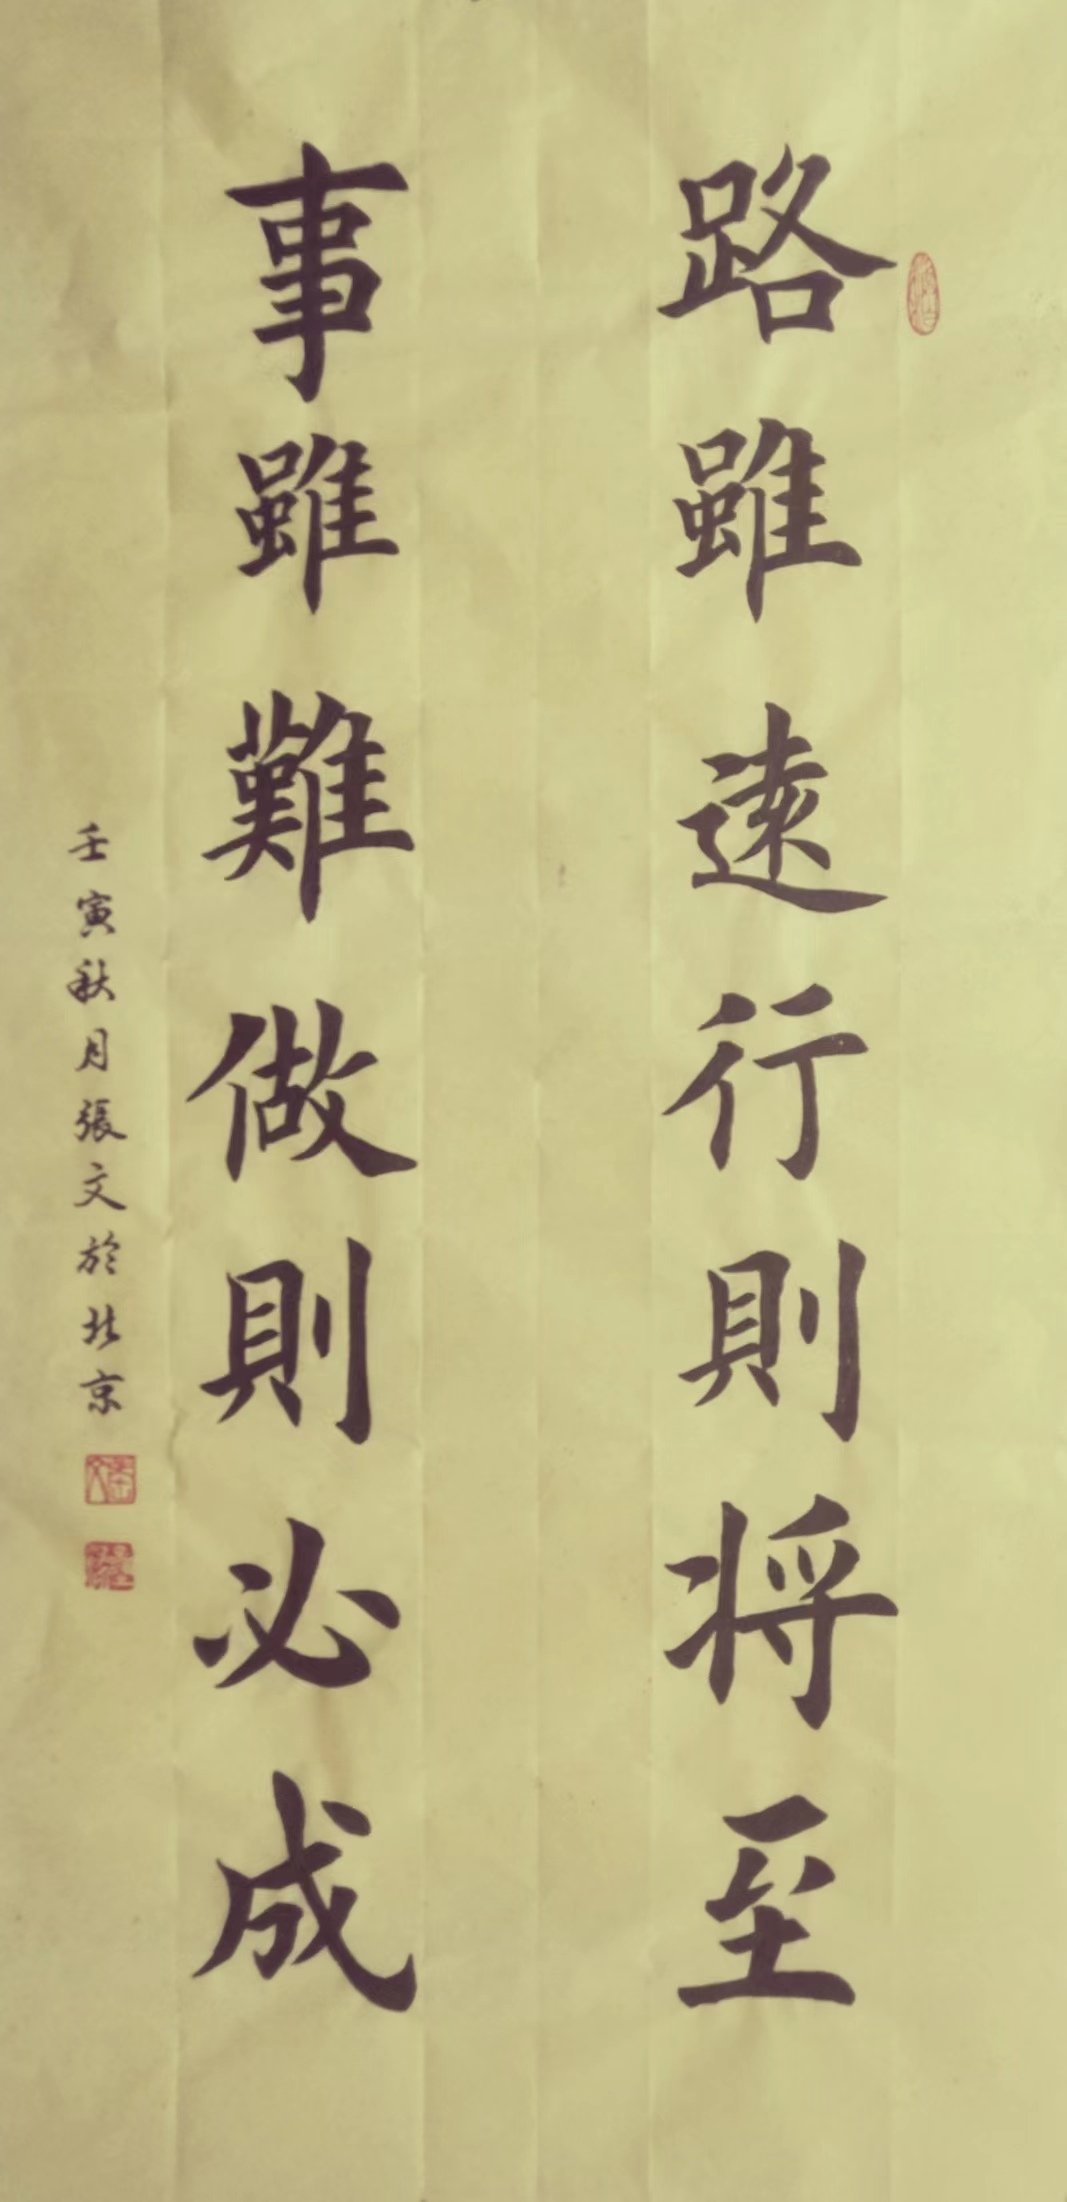 路雖遠行則将至
事雖難做則必成
壬寅秋月張文於北京